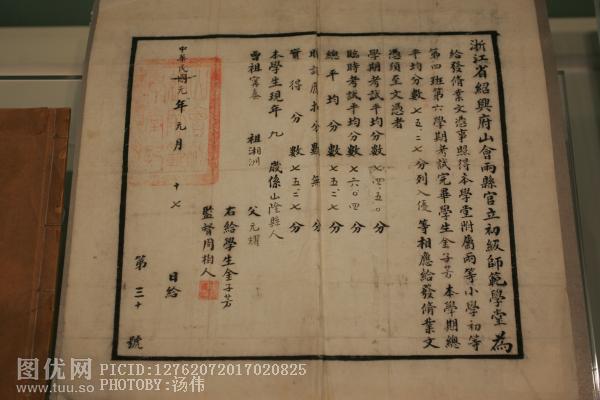 浙江省紹興府山會兩縣官立初級師範學堂為
給發脩業文憑事照得本學堂附屬兩等小學初等
第四班第六學期考試完畢學生金子芳本學期總
平均分數七五·二七分列入優等相應給發脩業文
憑須至文憑者
學期考試平均分數七四·五〇分
臨時考試平均分數七六·〇四分
總平均分數七五·二七分
分數無分
實得分數七五·二七分
本學生現年九歲係山陰縣人
曾祖 祖湘洲 父元耀
右給學生金子芳
監督周樹人
中華民國元年元月十七日給
第三十號
图优网
www.tuu.so
PICID:12762072017020825
PHOTOBY:汤伟